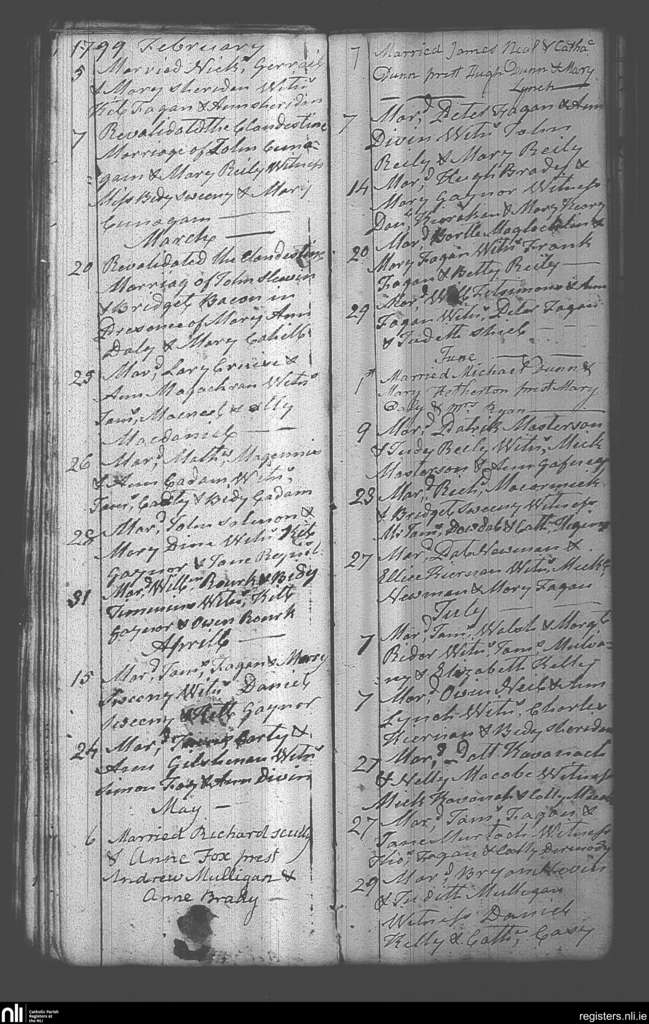 1799 February
5 Married Nich.s Gerrail
& Mary Sheriden Witn.s
Kitt Fagan & Ann Sheriden
7 Revalidated the Clandestine
Marriage of John Cuna-
gam & Mary Reily Witness
Miss Bidy Sweeny & Mary
Cunagam
March
20 Revalidated the Clandestine
Marriag of John Slevin
& Bridget Bacon in
Presence of Mary Ann
Daly & Mary Cahill
25 Mar.d Lary Cruise &
Ann Witn.s
Jam.s & Ally
Macdaniel
26 Mar.d Math.s Magennis
& Ann Gadam Witn.s
& Bidy Gadam
28 Mar.d John Salmon &
Mary Dine Witn.s Kitt
Gaynor & Jane
31 Mar.d Will.m Rourk & Bidy
Witn.s Kitt
Gaynor & Owen Rourk
Aprill
15 Mar.d Jam.s Fagan & Mary
Sweeny Witn.s Daniel
Sweeny & Kitt Gaynor
24 Mar.d Carty &
Ann Witn.s
Simon & Ann Divin
May
6 Married Richard Scully
& Anne Fox prest
Andrew Mulligan &
Anne Brady
7 Married James Neal & Catha.
Dunn prest Hugh Dunn & Mary
Lynch
7 Mar.d Peter Fagan & Ann
Divin Witn.s John
Reily & Mary Reily
14 Mar.d Hugh Brady &
Mary Gaynor Witness
Dan.l & Mary
20 Mar.d Bartle Maglochlan &
Mary Fagan Witn.s Frank
Fagan & Betty Reily
29 Mar.d Will.m Fitsimons & Ann
Fagan Witn.s Peter Fagan
& Judeth
June
1st Married Michael Dunn &
Mary Hetherton prest Mary
Daly & Mrs. Egan
9 Mar.d Patrick Masterson
& Judy Reely Witn.s Mick
Masterson & Ann Gafeney
23 Mar.d Rich.d Macormick
& Bridget Sweeny Witness
Mr. Jam.s Dowdal & Cath.
27 Mar.d Newman &
Kiernan Witn.s Mick
Newman & Mary Fagan
July
7 Mar.d Jam.s Walsh & Marg.t
Rider Witn.s Jam.s Mulva-
ny & Elizabeth Kelly
7 Mar.d Owin Neil & Ann
Lynch Witn.s Charles
Kiernan & Bidy Sheriden
27 Mar.d Patt Kavanach
& Nelly Macabe Witness
Mick Kavanah & Catty
27 Mar.d Jam.s Fagan &
Jane Murtach Witness
Tho.s Fagan & Catty Dermody
29 Mar.d Bryan Nevill
& Judith Mulligan
Witness Daniel
Kelly & Cath. Casy
nli
Catholic Parish
Registers at
the NLI
registers.nli.ie